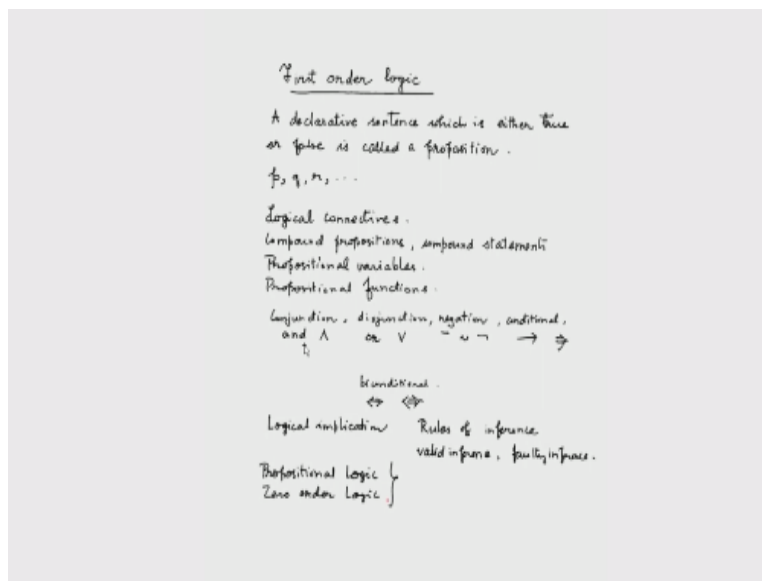 First order logic
A declarative sentence which is either true
or false is called a proposition.
p, q, r, ...
Logical connectives.
Compound propositions, compound statements
Propositional variables.
Propositional functions.
Conjunction, disjunction, negation, conditional,
and ∧ or ∨ ¯ ~ ¬ → ⇒
biconditional.
↔ ⇔
Logical implication Rules of inference
valid inference, faulty inference.
Propositional Logic
Zero order Logic